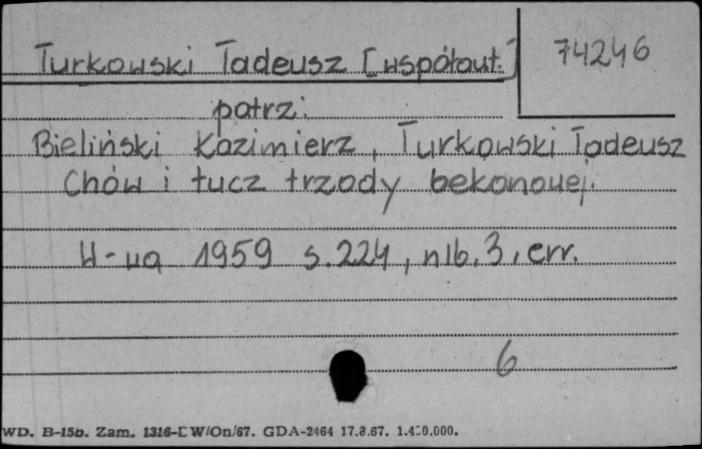 Turkowski Tadeusz [współaut.] 74246
patrz:
Bieliński Kazimierz, Turkowski Tadeusz
Chów i tucz trzody bekonowej.
W-wa 1959 s.224, nlb. 3, err.
6
WD. B-15b. Zam. 1316-D W/On/67. GDA-2464 17.8.67.